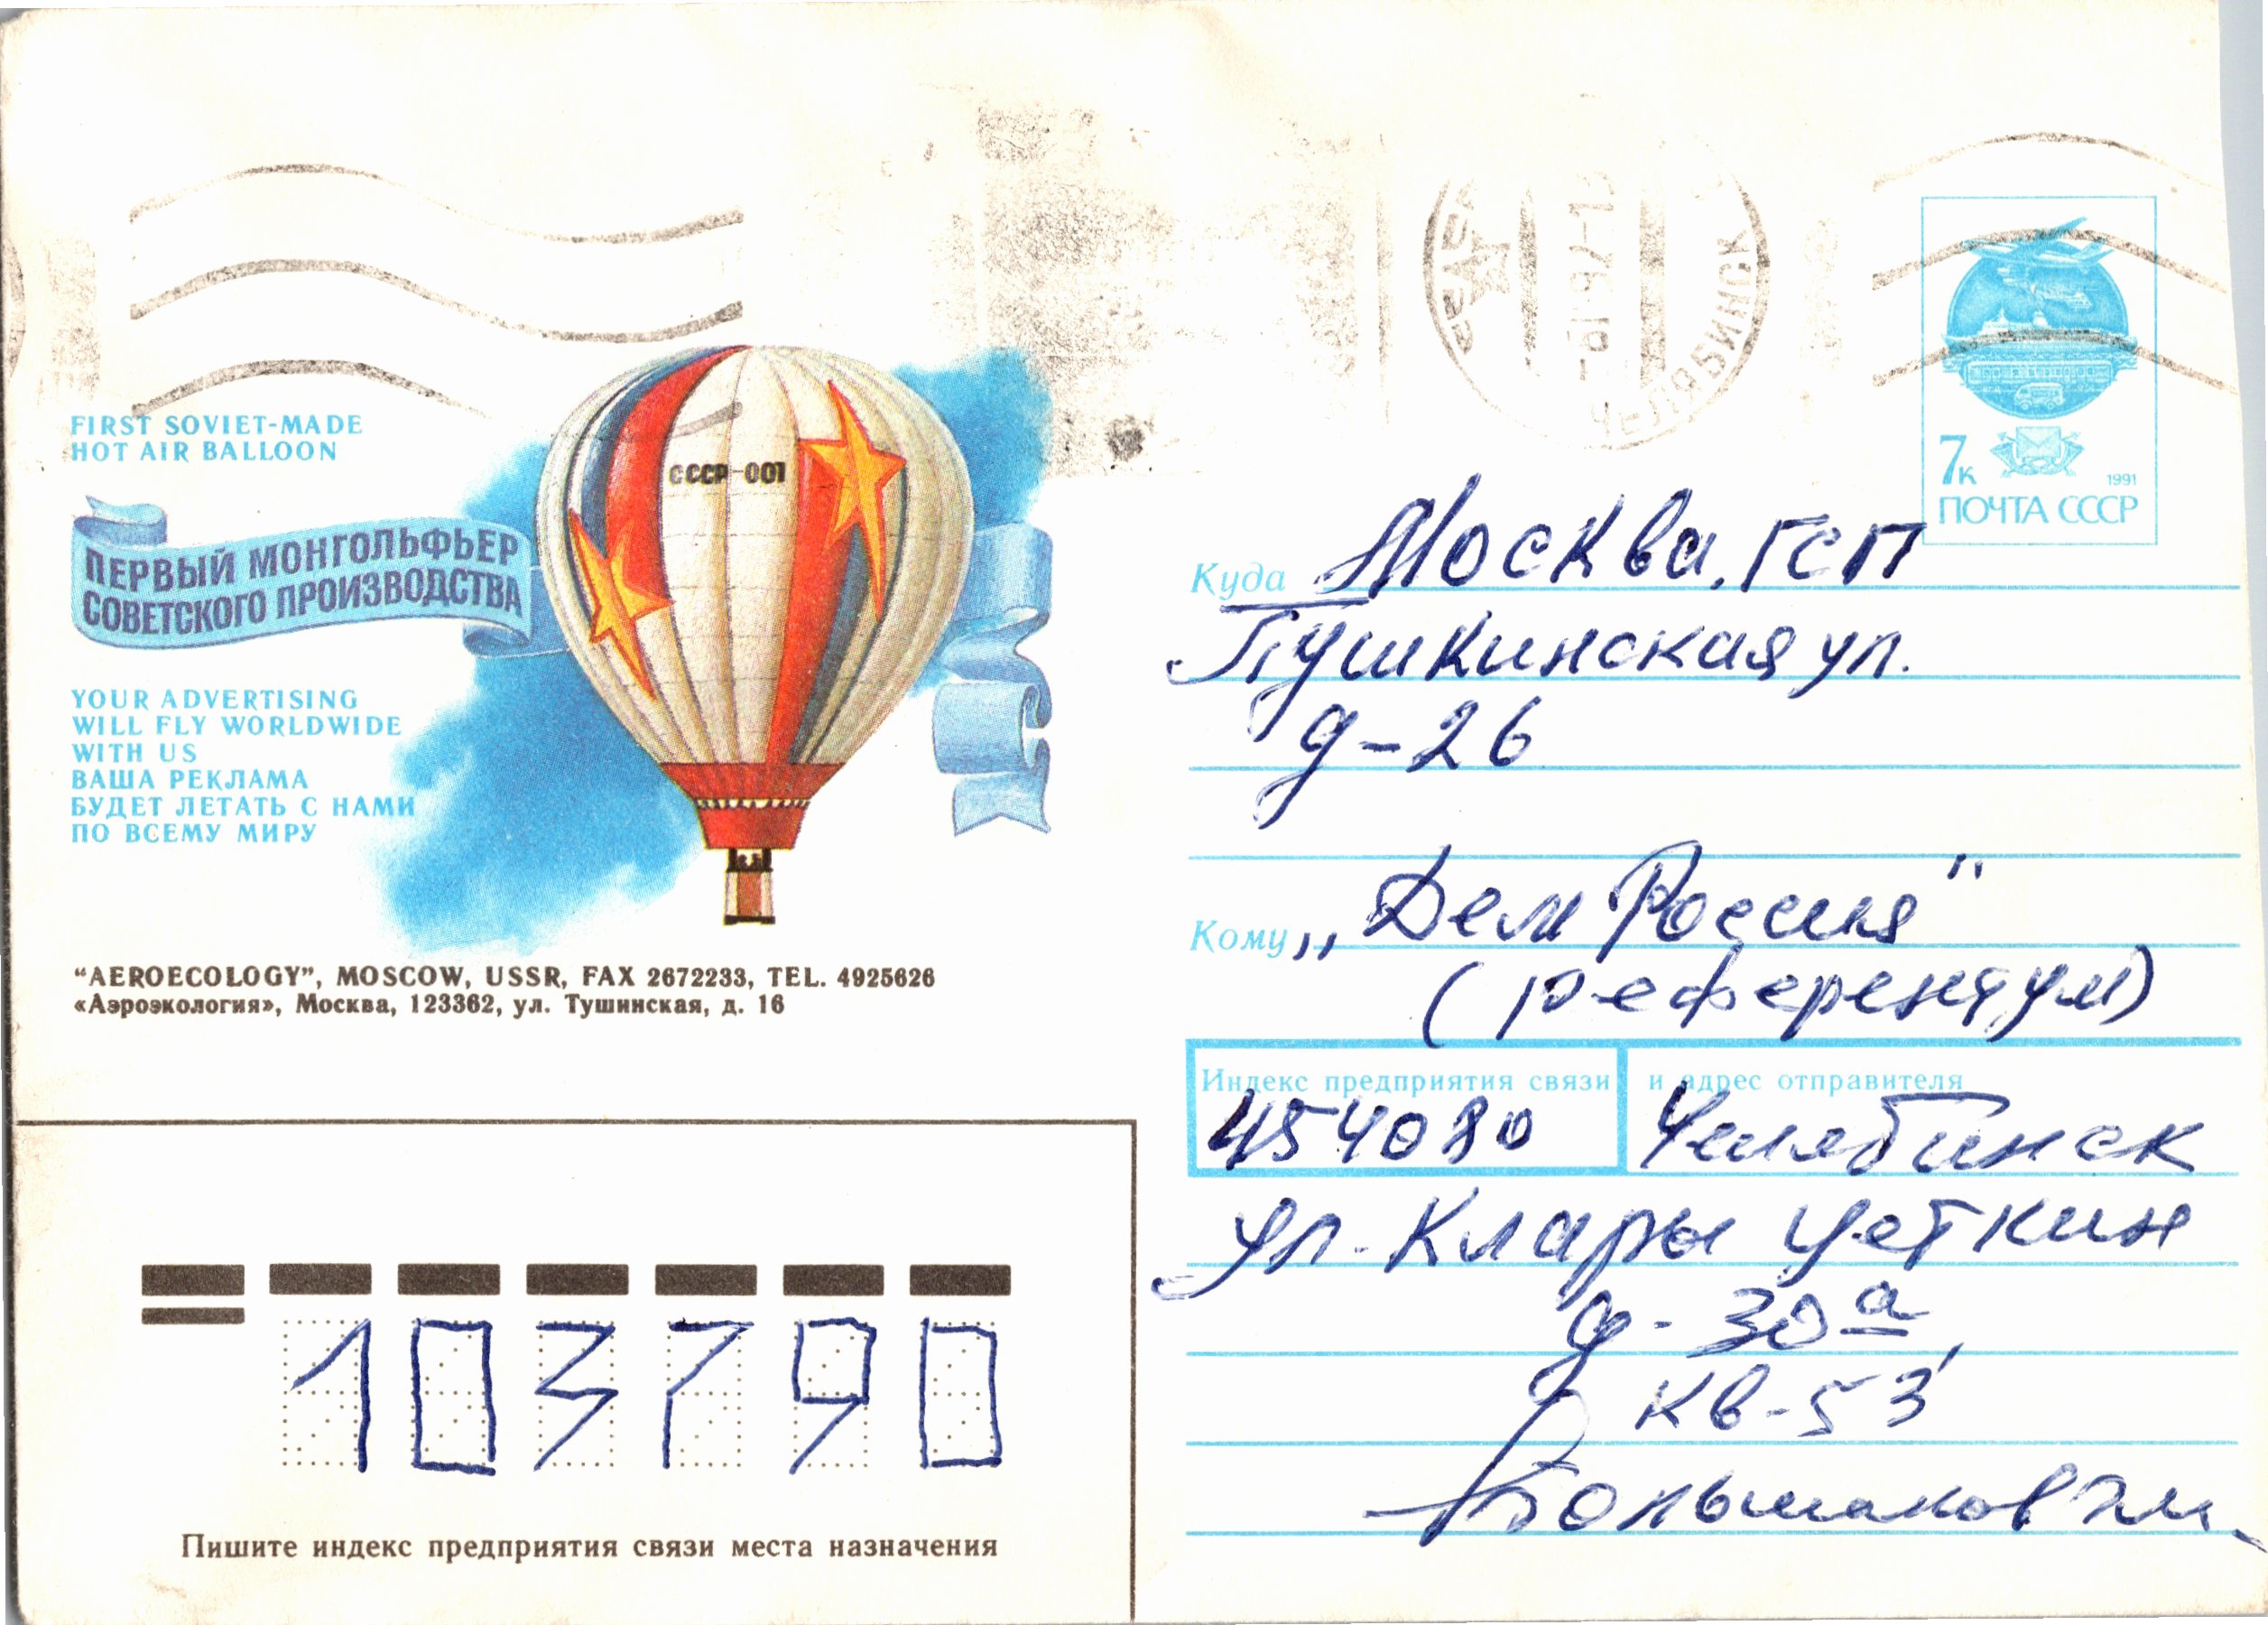 FIRST SOVIET-MADE
HOT AIR BALLOON
ПЕРВЫЙ МОНГОЛЬФЬЕР
СОВЕТСКОГО ПРОИЗВОДСТВА
СССР-001
YOUR ADVERTISING
WILL FLY WORLDWIDE
WITH US
ВАША РЕКЛАМА
БУДЕТ ЛЕТАТЬ С НАМИ
ПО ВСЕМУ МИРУ
“AEROECOLOGY”, MOSCOW, USSR, FAX 2672233, TEL. 4925626
«Аэроэкология», Москва, 123362, ул. Тушинская, д. 16
103790
Пишите индекс предприятия связи места назначения
ЧЕЛЯБИНСК
7к
1991
ПОЧТА СССР
Куда Москва, ГСП
Пушкинская ул.
д-26
Кому „Дем Россия"
(референдум)
Индекс предприятия связи и адрес отправителя
454080 Челябинск
ул. Клары Цеткин
д-30а,
кв-53
Большаков